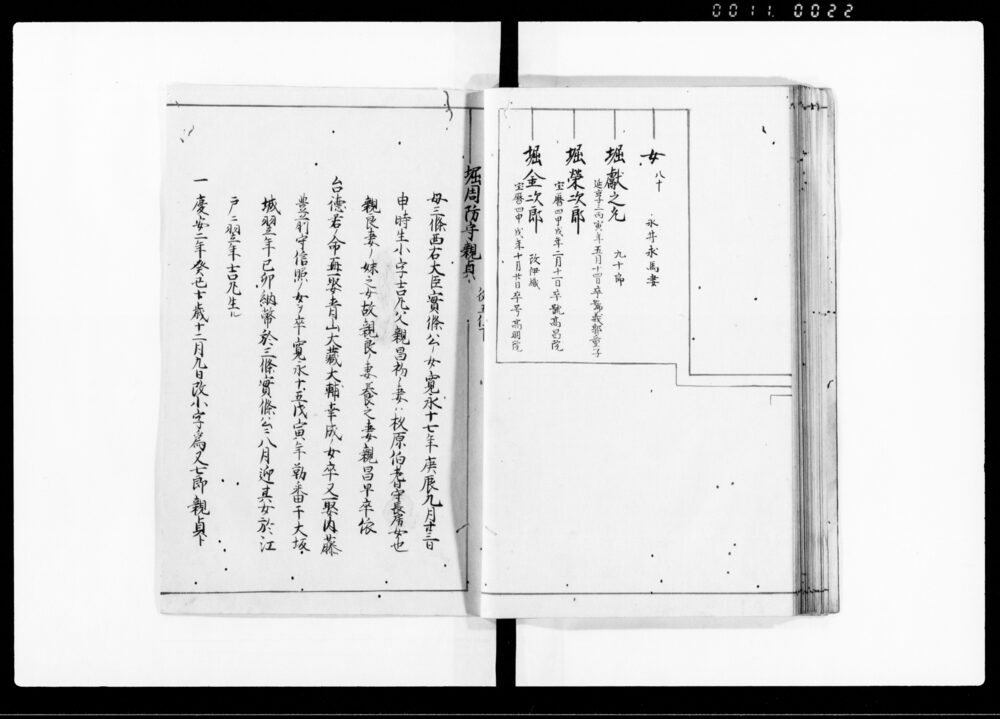 0011 0022
女 八十
永井永馬妻
堀獻之允 九十郎
延享三丙寅年五月十四日卒號 童子
堀榮次郎
宝曆四甲戌年二月十一日卒號高昌院
堀金次郎 改伊織
宝曆四甲戌年十月廿日卒号高明院
堀周防守親貞 從五位下
母三條西右大臣實條公ノ女寛永十七年庚辰九月廿三日
申時生小字吉凡父親昌初ノ妻ハ秋原伯耆守長房女也
親良妻ノ妹之女故親良ノ妻養之妻親昌早卒依
台德君ノ命再娶青山大藏大輔幸成ノ女卒又娶内藤
豊前守信照ノ女ヲ卒寛永十五戊寅年勤番于大坂
城翌年己卯納幣於三條實條公ニ八月迎其女於江
戸ニ翌年吉凡生ル
一 慶安二年 十歳十二月九日改小字ヲ為又七郎親貞ト